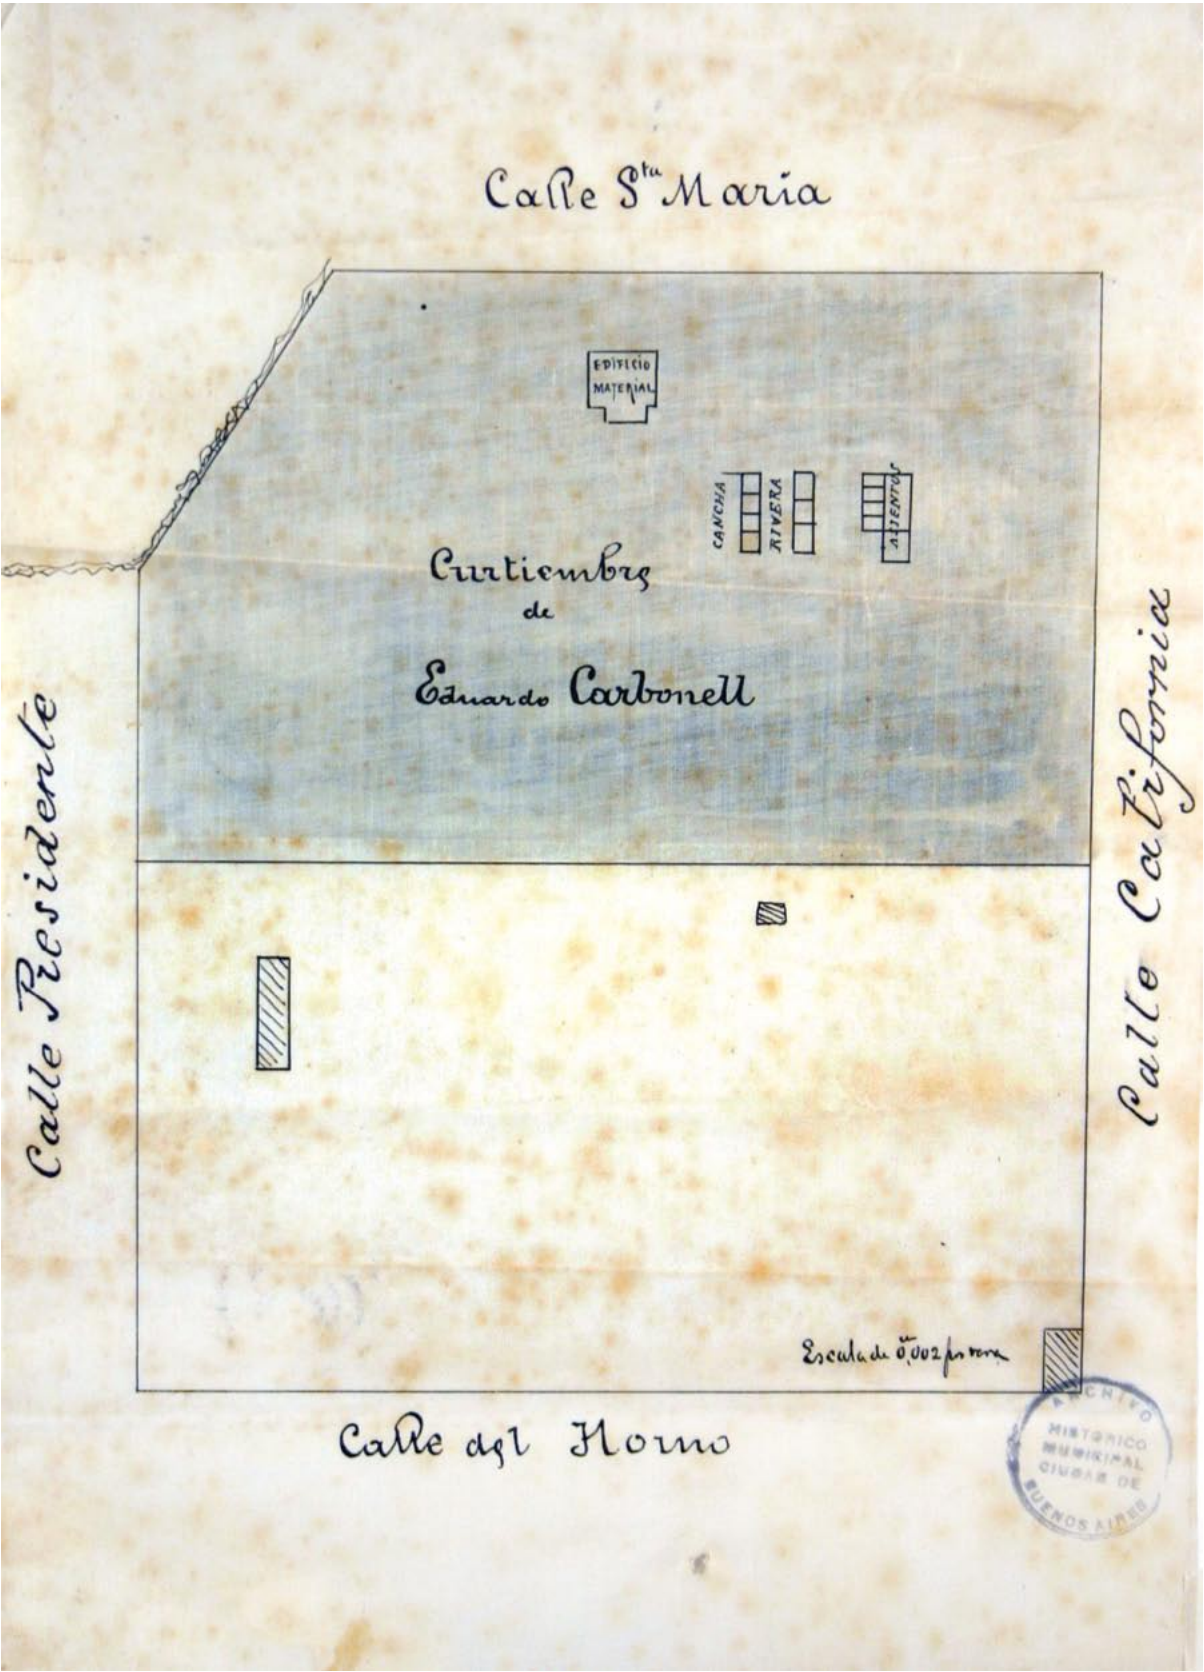 Calle Sta Maria
EDIFICIO
MATERIAL
CANCHA
RIVERA
ASIENTOS
Curtiembre
de
Eduardo Carbonell
Calle Presidente
Calle California
Escala de 0,m002 por vara
Calle del Horno
ARCHIVO
HISTORICO
MUNICIPAL
CIUDAD DE
BUENOS AIRES